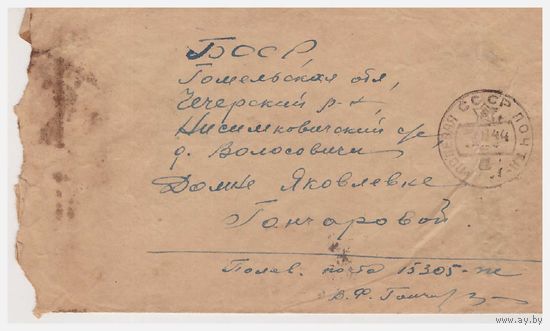 БССР,
Гомельская обл,
Чечерский р-н,
Нисимковичский с/с
д. Волосовичи
Домне Яковлевне
Гончаровой.
Полев. почта 15305-ж
В. Ф. Гончар
СССР ПОЧТА
44
www.ay.by